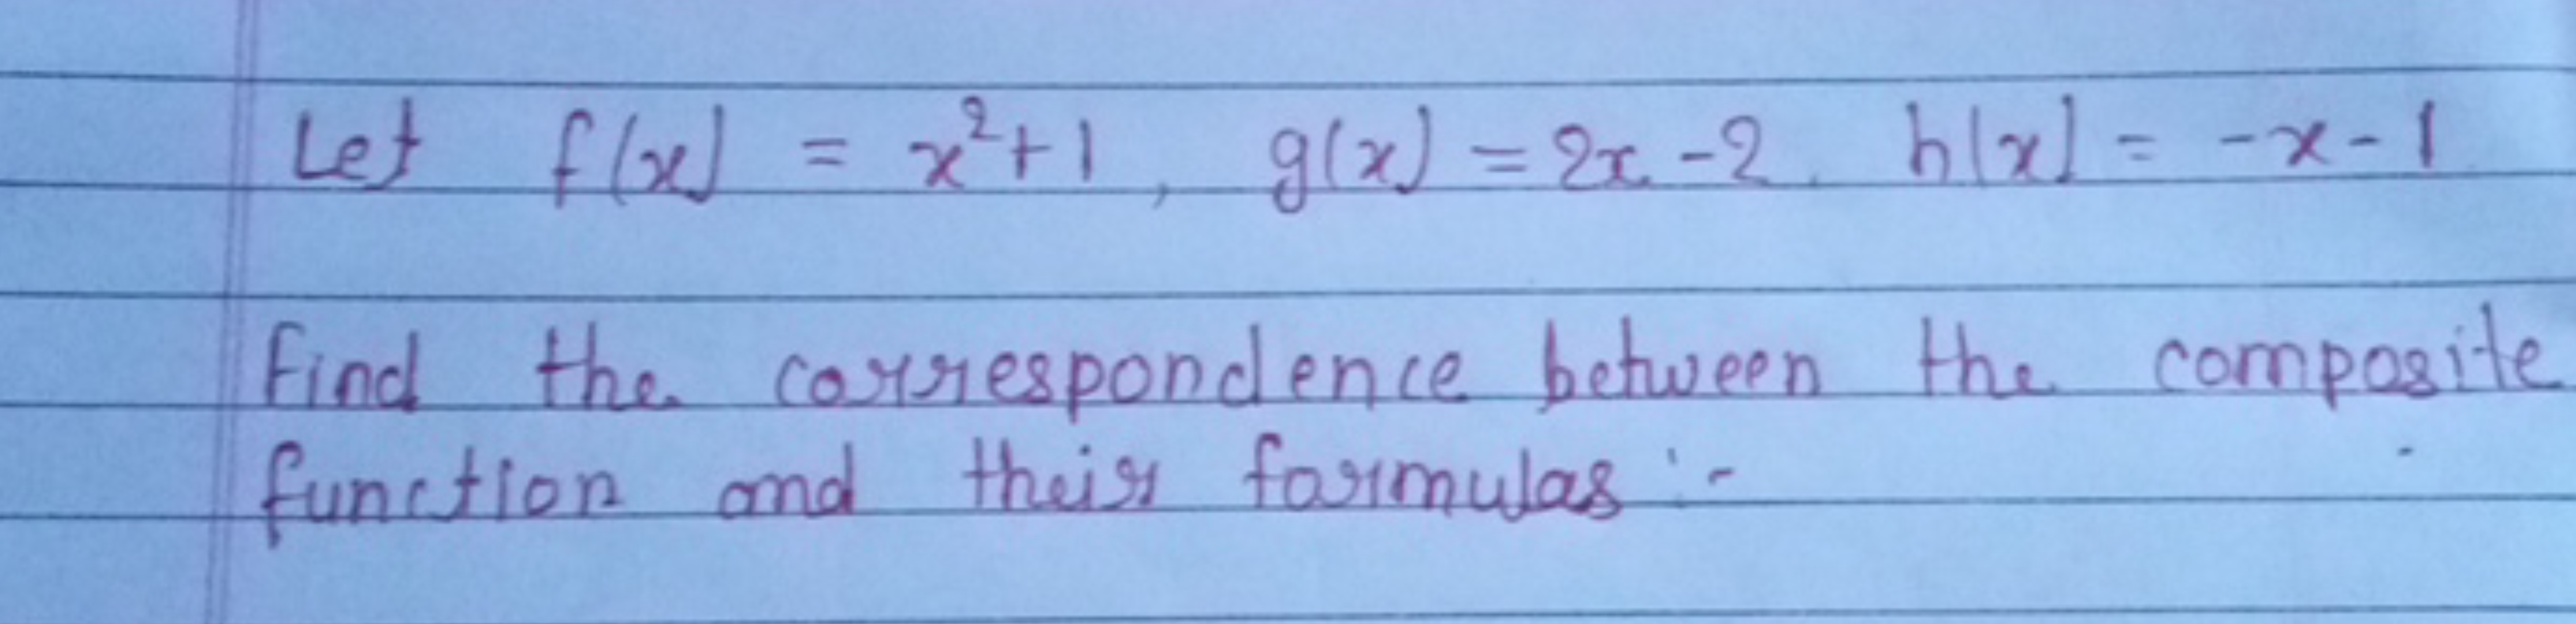 Let f(x) = x²+1, g(x) = 2x-2. h(x) = -x-1
Find the correspondence between the composite
function and their formulas :-